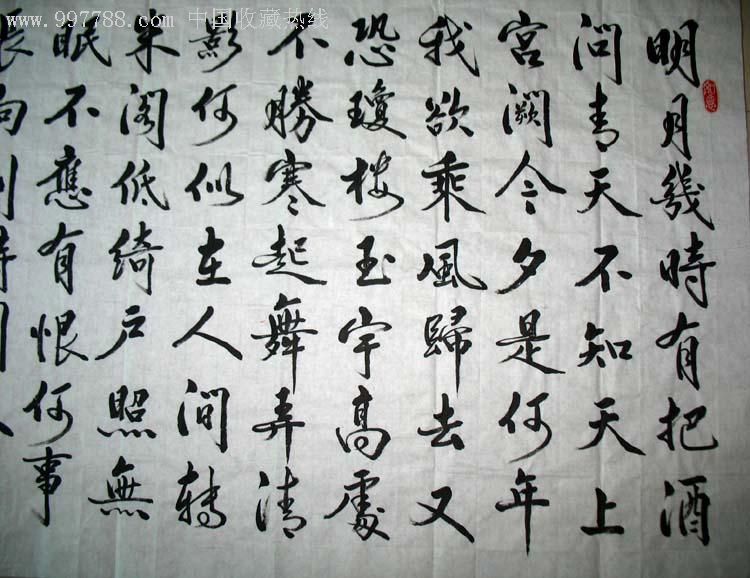 www.997788.com 中国收藏热线
明月幾時有把酒
問青天不知天上
宮闕今夕是何年
我欲乘風歸去又
恐瓊樓玉宇高處
不勝寒起舞弄清
影何似在人間轉
朱閣低綺戶照無
眠不應有恨何事
長向別時